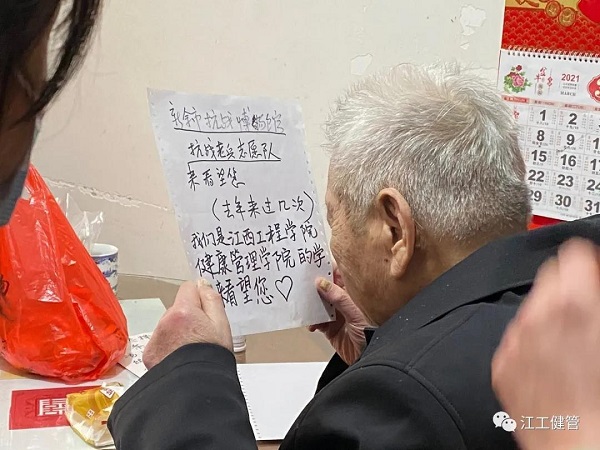 新余市抗战博物馆
抗战老兵志愿队
来看望您
(去年来过几次)
我们是江西工程学院
健康管理学院的学
来看望您♡
2021
1 2 3
8 9 10
15 16 17
22 23 24
29 30 31
江工健管